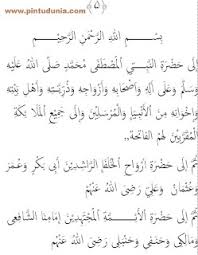 www.pintudunia.com
﴿٥﴾
بِسْمِ اللهِ الرَّحْمٰنِ الرَّحِيْمِ
إِلَى حَضْرَةِ النَّبِيِّ الْمُصْطَفَى مُحَمَّدٍ صَلَّى اللهُ عَلَيْهِ
وَسَلَّمَ وَآلِهِ وَأَصْحَابِهِ وَأَزْوَاجِهِ وَذُرِّيَّتِهِ وَأَهْلِ بَيْتِهِ
وَإِخْوَانِهِ مِنَ الْأَنْبِيَاءِ وَالْمُرْسَلِيْنَ وَإِلَى جَمِيْعِ الْمَلَائِكَةِ
الْمُقَرَّبِيْنَ لَهُمُ الْفَاتِحَة..
ثُمَّ إِلَى حَضْرَةِ أَرْوَاحِ الْخُلَفَاءِ الرَّاشِدِيْنَ أَبِى بَكْرٍ وَعُمَرَ
وَعُثْمَانَ وَعَلِيّ رَضِىَ اللهُ عَنْهُمْ
ثُمَّ إِلَى حَضْرَةِ الْأَئِمَّةِ الْمُجْتَهِدِيْنَ إِمَامِنَا الشَّافِعِى
وَمَالِكِى وَحَنَفِى وَحَنْبَلِى رَضِىَ اللهُ عَنْهُمْ